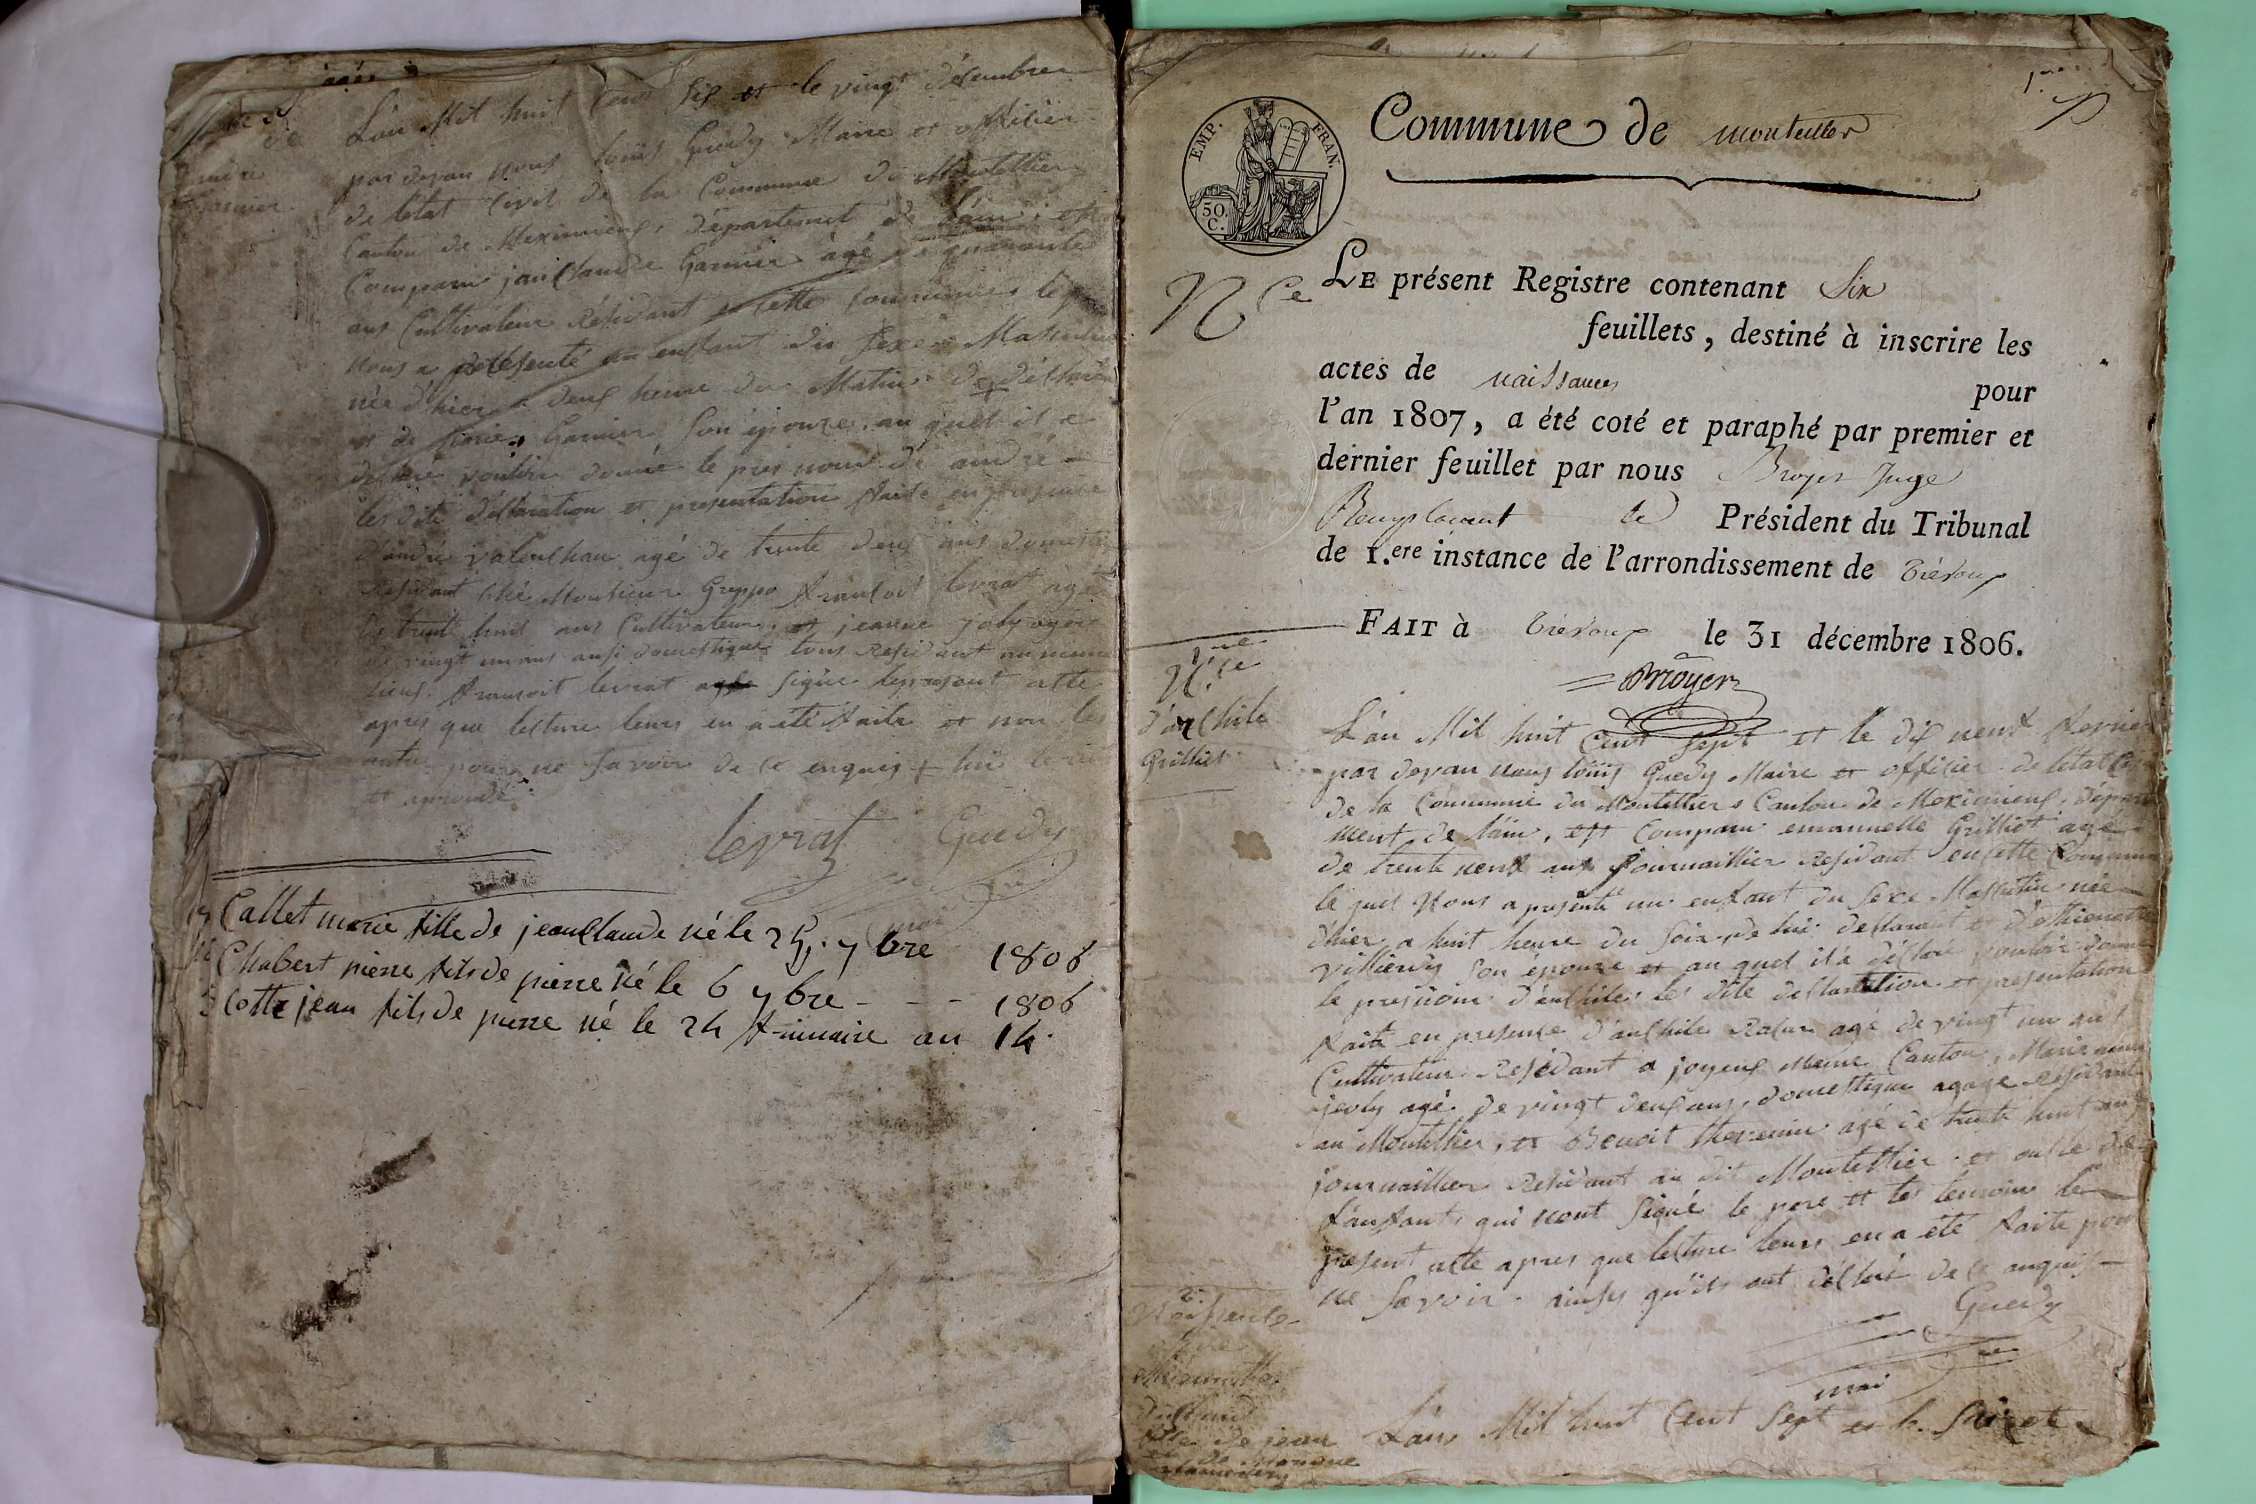 L'an Mil huit Cent Six et le vingt décembre
par devan nous louis Guedy Maire et officier
de letat Civil de la Commune du Montellier
Canton de Meximieux, département de l'ain, est
Comparu jan Claude Garnier agé de quarante
ans Cultivateur Residant en cette Commune lequel
nous a présenté un enfant du sexe Masculin
née d'hier a deux heure du Matin
et de Garnier son épouze, au quel il a
déclaré vouloir donné le pres nom de andré
les dite déclaration et presentation faite en presence
d'andré valenchau agé de trente deux ans domestique
Residant Ché Monsieur Greppo francois levrat agé
de trente huit ans Cultivateur, et jeanne joly agée
de vingt un ans ausi domestique tous Residant au meme
lieux. francoit levrat signé le present acte
apres que lecture leurs en a été faite et non les
autre pour ne savoir de ce enquis
et aprouvé
levrat Guedy
Callet marie fille de jean Claude né le 25 7bre 1806
Chabert pierre fils de pierre né le 6 9bre - - - 1806
Cotte jean fils de pierre né le 24 frimaire an 14.
EMP. FRAN.
50 C.
Commune de montellier
LE présent Registre contenant Six
feuillets, destiné à inscrire les
actes de naissances pour
l'an 1807, a été coté et paraphé par premier et
dernier feuillet par nous Broyer Juge
Remplacant le Président du Tribunal
de 1.ere instance de l'arrondissement de Trévoux
FAIT à Trévoux le 31 décembre 1806.
Broyer
N.ce
d'anthile
Grilliet
L'an Mil huit Cent Sept et le dix neuf fevrier
par devan nous louis Guedy Maire et officier de letat Civil
de la Commune du Montellier Canton de Meximieux, départe
ment de l'ain, est Comparu emannuelle Grilliet agé
de trente neuf ans journaillier residant en cette Commune
le quel Nous a presenté un enfant du sexe Masculin née
d'hier a huit heure du soir, de lui declarant et d'ethienette
villierdy son épouze et au quel il a déclaré vouloir donné
le presnom d'anthile les dite declaration et presentation
faite en presence d'anthile agé de vingt un ans
Cultivateur Residant a joyeux meme Canton, Marie anne
joly agé de vingt deux ans, domestique agage residant
au Montellier, et Benoit thevenin agé de trente huit ans
journaillier residant au dit Montellier et
l'anfant, qui nont signé le pere et les temoins le
present acte apres que lecture leurs en a été faite pour
ne savoir ainsy qu'ils ont déclaré de ce anquis
Guedy
2.e
Naissance
fille de jean
mai
L'an Mil huit Cent Sept et le Saize